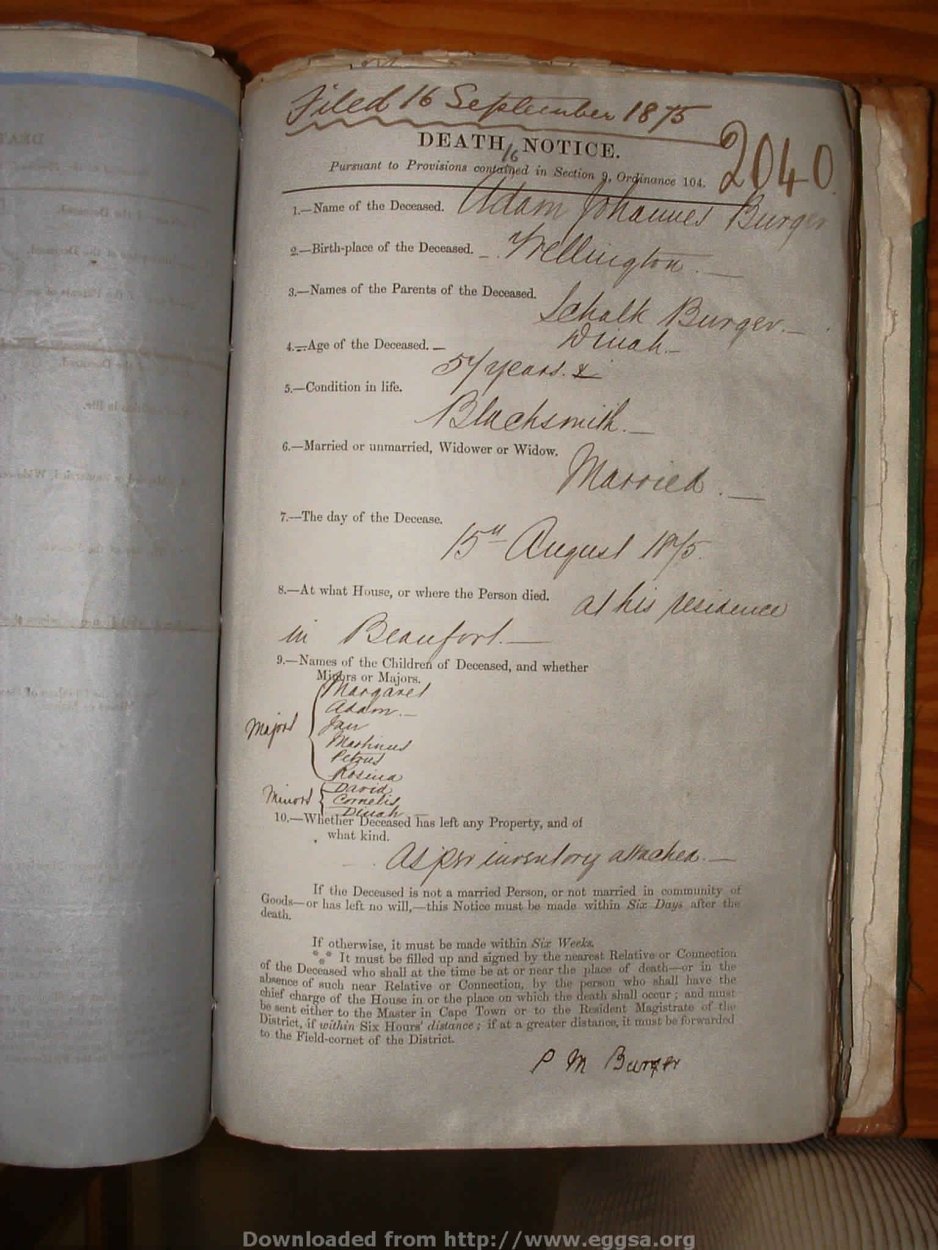 Filed 16 September 1875
2040
DEATH NOTICE.
16
Pursuant to Provisions contained in Section 9, Ordinance 104.
1.—Name of the Deceased. Adam Johannes Burger
2.—Birth-place of the Deceased. — Wellington —
3.—Names of the Parents of the Deceased.
Schalk Burger —
Dinah —
4.—Age of the Deceased. —
57 years. &
5.—Condition in life.
Blacksmith. —
6.—Married or unmarried, Widower or Widow.
Married —
7.—The day of the Decease.
15th August 1875
8.—At what House, or where the Person died. at his residence
in Beaufort. —
9.—Names of the Children of Deceased, and whether
Minors or Majors.
Majors
Margaret
Adam —
Jan
Marthinus
Petrus
Rosina
Minors
David
Cornelis
Dinah —
10.—Whether Deceased has left any Property, and of
what kind.
As per inventory attached. —
If the Deceased is not a married Person, or not married in community of
Goods—or has left no will,—this Notice must be made within Six Days after the
death.
If otherwise, it must be made within Six Weeks.
*** It must be filled up and signed by the nearest Relative or Connection
of the Deceased who shall at the time be at or near the place of death—or in the
absence of such near Relative or Connection, by the person who shall have the
chief charge of the House in or the place on which the death shall occur; and must
be sent either to the Master in Cape Town or to the Resident Magistrate of the
District, if within Six Hours' distance; if at a greater distance, it must be forwarded
to the Field-cornet of the District.
P M Burger
Downloaded from http://www.eggsa.org